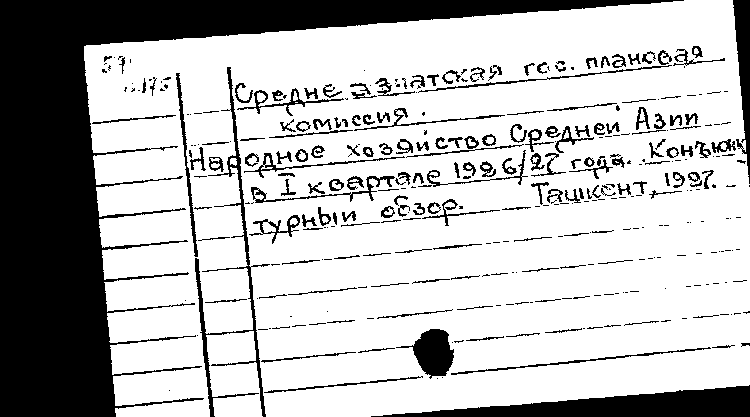 59
Средне азиатская гос. плановая
комиссия.
Народное хозяйство Средней Азии
в I квартале 1926/27 года. Конъюнк
турный обзор. Ташкент, 1927.